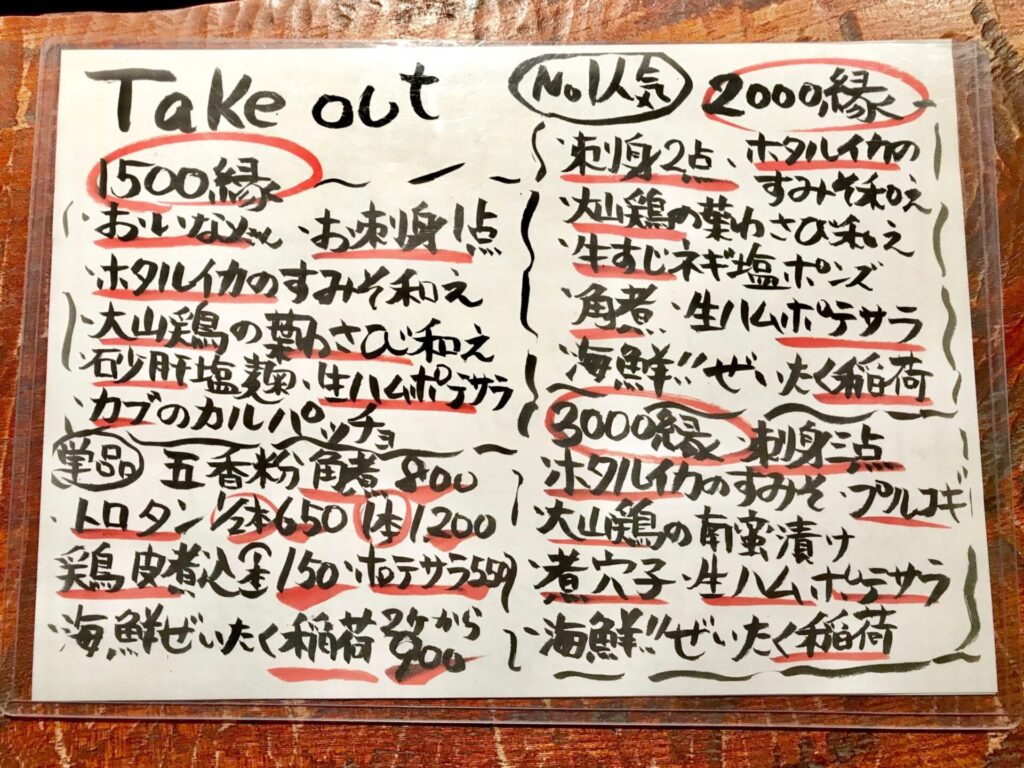 Take out
1500縁
・おいなりさん お刺身1点
・ホタルイカのすみそ和え
・大山鶏の葉わさび和え
・砂肝塩麹・生ハムポテサラ
・カブのカルパッチョ
単品 五香粉角煮 800
・トロタン 1/2本650 1本1200
・鶏皮煮込(1本)150・ポテサラ550
・海鮮ぜいたく稲荷2ケから900
No.1人気 2000縁
・刺身2点・ホタルイカの
すみそ和え
・大山鶏の葉わさび和え
・牛すじネギ塩ポンズ
・角煮・生ハムポテサラ
・海鮮!!ぜいたく稲荷
3000縁 刺身三点
・ホタルイカのすみそ・プルコギ
・大山鶏の南蛮漬け
・煮穴子・生ハムポテサラ
・海鮮!!ぜいたく稲荷